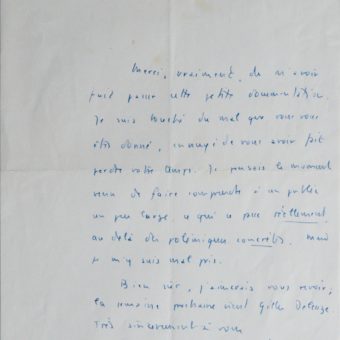 Merci, vraiment, de m'avoir
fait passer cette petite documentation.
Je suis touché du mal que vous vous
êtes donné, ennuyé de vous avoir fait
perdre votre temps. Je pensais le moment
venu de faire comprendre à un public
un peu large, ce qui a lieu réellement
au delà des polémiques concrètes, mais
je m'y suis mal pris.
Bien sûr, j'aimerais vous revoir,
la semaine prochaine vient Gilles Deleuze.
Très sincèrement à vous